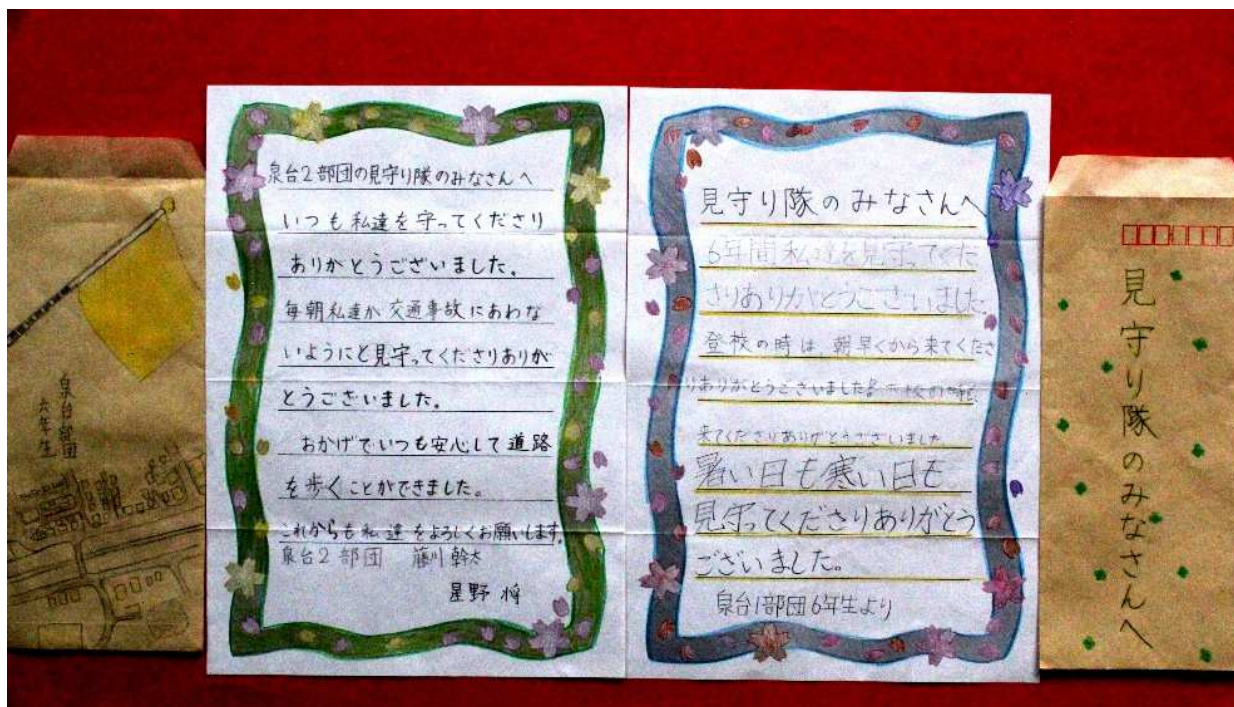 泉台部団
六年生
泉台2部団の見守り隊のみなさんへ
いつも私達を守ってくださり
ありがとうございました。
毎朝私達が交通事故にあわな
いようにと見守ってくださりありが
とうございました。
おかげでいつも安心して道路
を歩くことができました。
これからも私達をよろしくお願いします。
泉台2部団 藤川幹太
星野将
見守り隊のみなさんへ
6年間私達を見守ってくだ
さりありがとうございました。
登校の時は、朝早くから来てくださ
りありがとうございました。
来てくださりありがとうございました
暑い日も寒い日も
見守ってくださりありがとう
ございました。
泉台1部団6年生より
見守り隊のみなさんへ